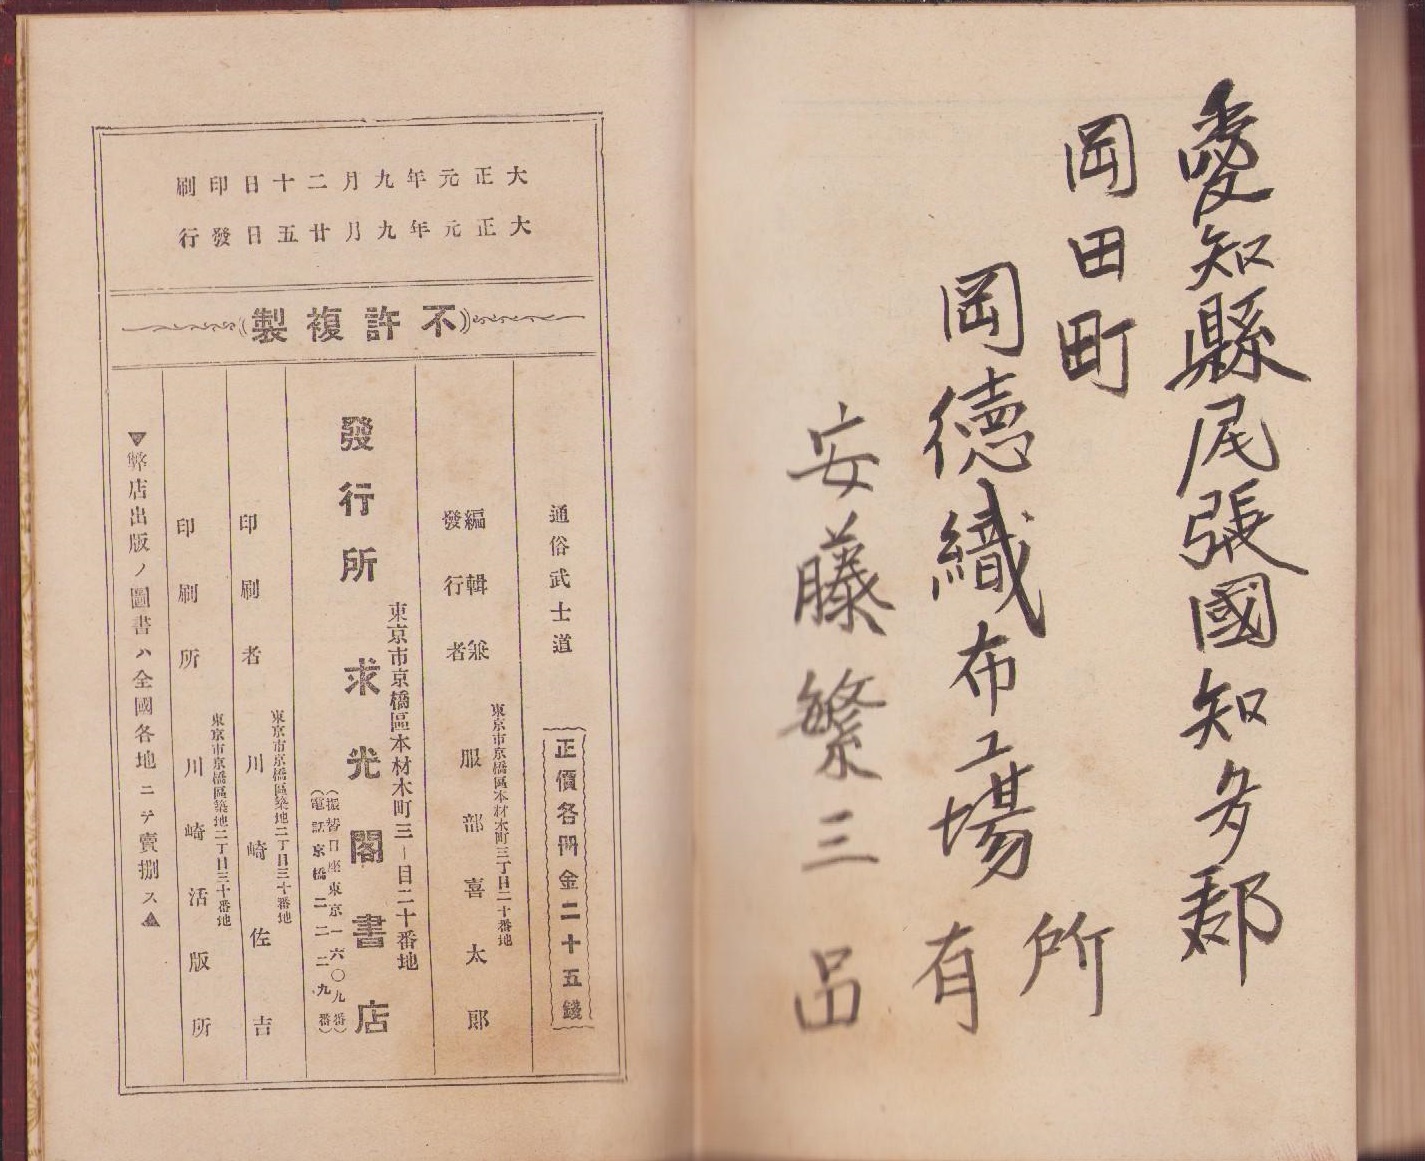 愛知縣尾張國知多郡
岡田町
岡德織布工場
所有
安藤繁三
大正元年九月二十日印刷
大正元年九月廿五日發行
不許複製
通俗武士道
正價各冊金二十五錢
編輯兼發行者
東京市京橋區本材木町三丁目二十番地
服部喜太郎
東京市京橋區本材木町三丁目二十番地
發行所 求光閣書店
(振替口座東京一六〇九番)
(電話京橋二二二九番)
東京市京橋區築地二丁目三十番地
印刷者 川崎佐吉
東京市京橋區築地二丁目三十番地
印刷所 川崎活版所
▼弊店出版ノ圖書ハ全國各地ニテ賣捌ス▲